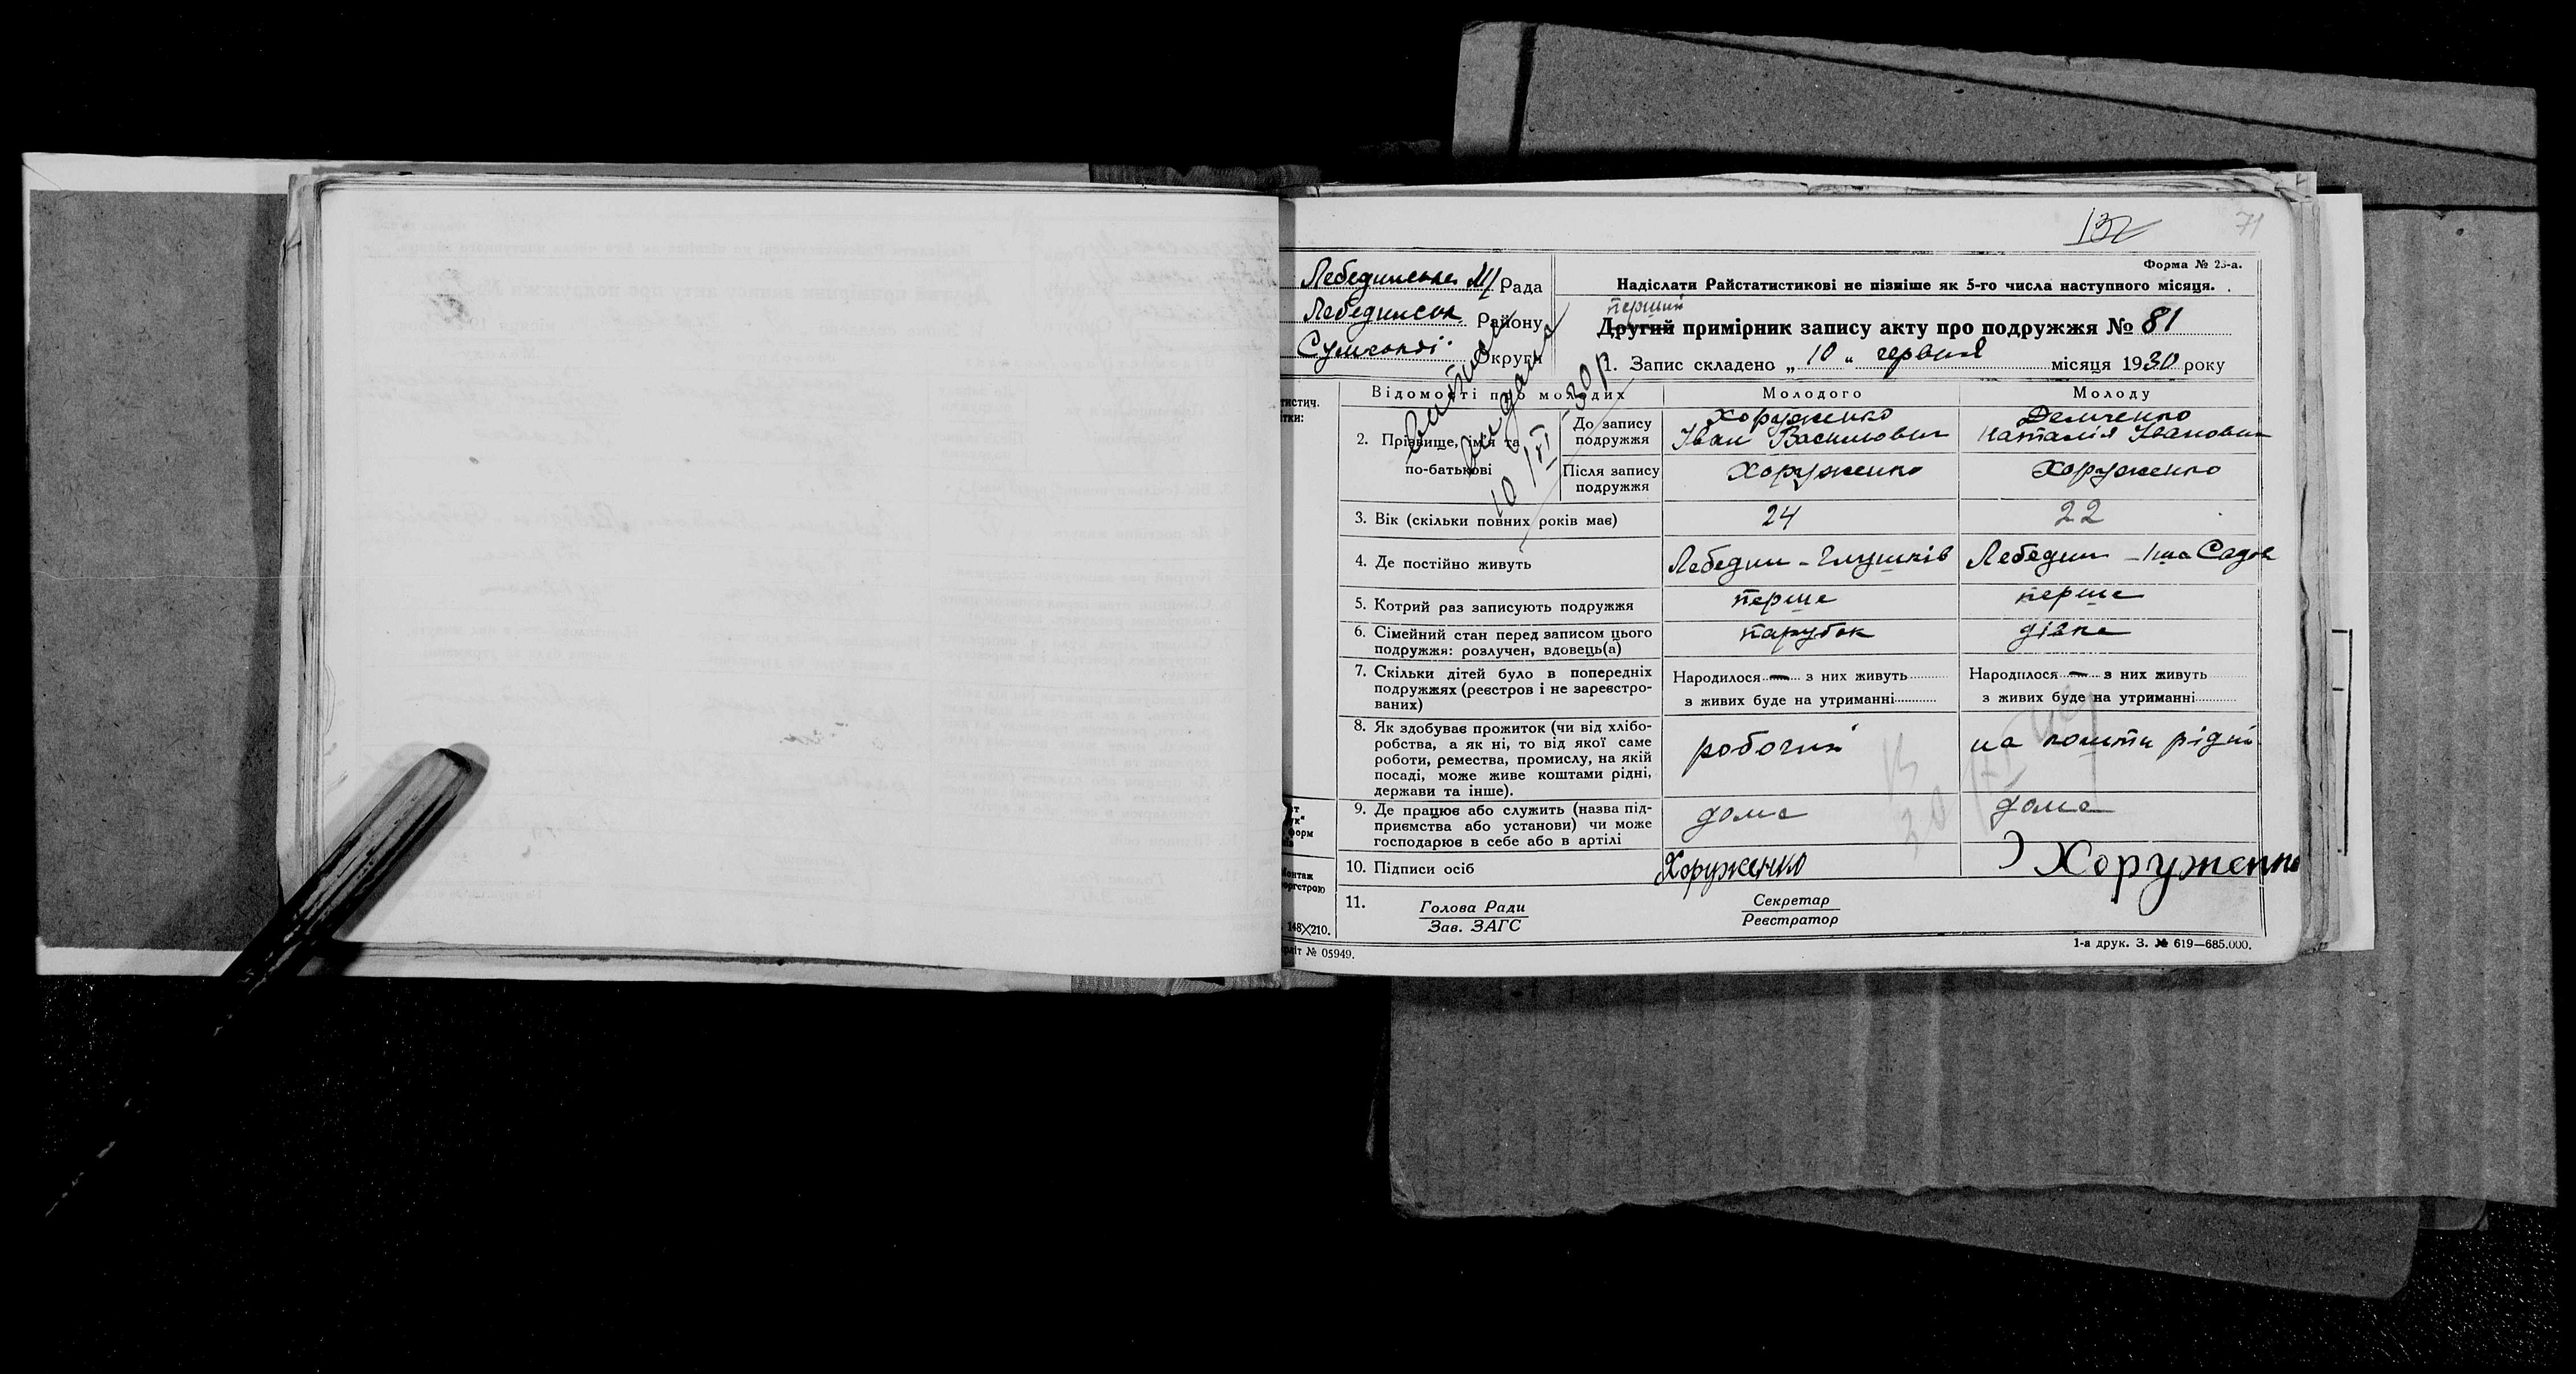 132
71
Форма № 23-а.
Лебединська М/Рада
Лебединськ. Району
Сумської Округи
Надіслати Райстатистикові не пізніше як 5-го числа наступного місяця.
перший
Другий примірник запису акту про подружжя № 81
1. Запис складено „ 10 " червня місяця 1930 року
Витяг
видана
10/VI-30р
тистич.
ітки:
Відомості про молодих
Молодого
Молоду
2. Прізвище, ім'я та
по-батькові
До запису
подружжя
Хоруженко
Іван Васильович
Демченко
Наталія Івановн
Після запису
подружжя
Хоруженко
Хоруженко
3. Вік (скільки повних років має)
24
22
4. Де постійно живуть
Лебедин -
Лебедин - 1ша Садов
5. Котрий раз записують подружжя
перше
перше
6. Сімейний стан перед записом цього
подружжя: розлучен, вдовець(а)
парубок
дівка
7. Скільки дітей було в попередніх
подружжях (реєстров і не зареєстро-
ваних)
Народилося — з них живуть
з живих буде на утриманні
Народилося — з них живуть
з живих буде на утриманні
8. Як здобуває прожиток (чи від хлібо-
робства, а як ні, то від якої саме
роботи, ремества, промислу, на якій
посаді, може живе коштами рідні,
держави та інше).
робочий
на кошти рідні
9. Де працює або служить (назва під-
приємства або установи) чи може
господарює в себе або в артілі
дома
дома
10. Підписи осіб
Хоруженко
Хоруженко
11.
Голова Ради
Зав. ЗАГС
Секретар
Реєстратор
форм
Монтаж
оргстрою
148×210.
літ № 05949.
1-а друк. З. № 619—685.000.